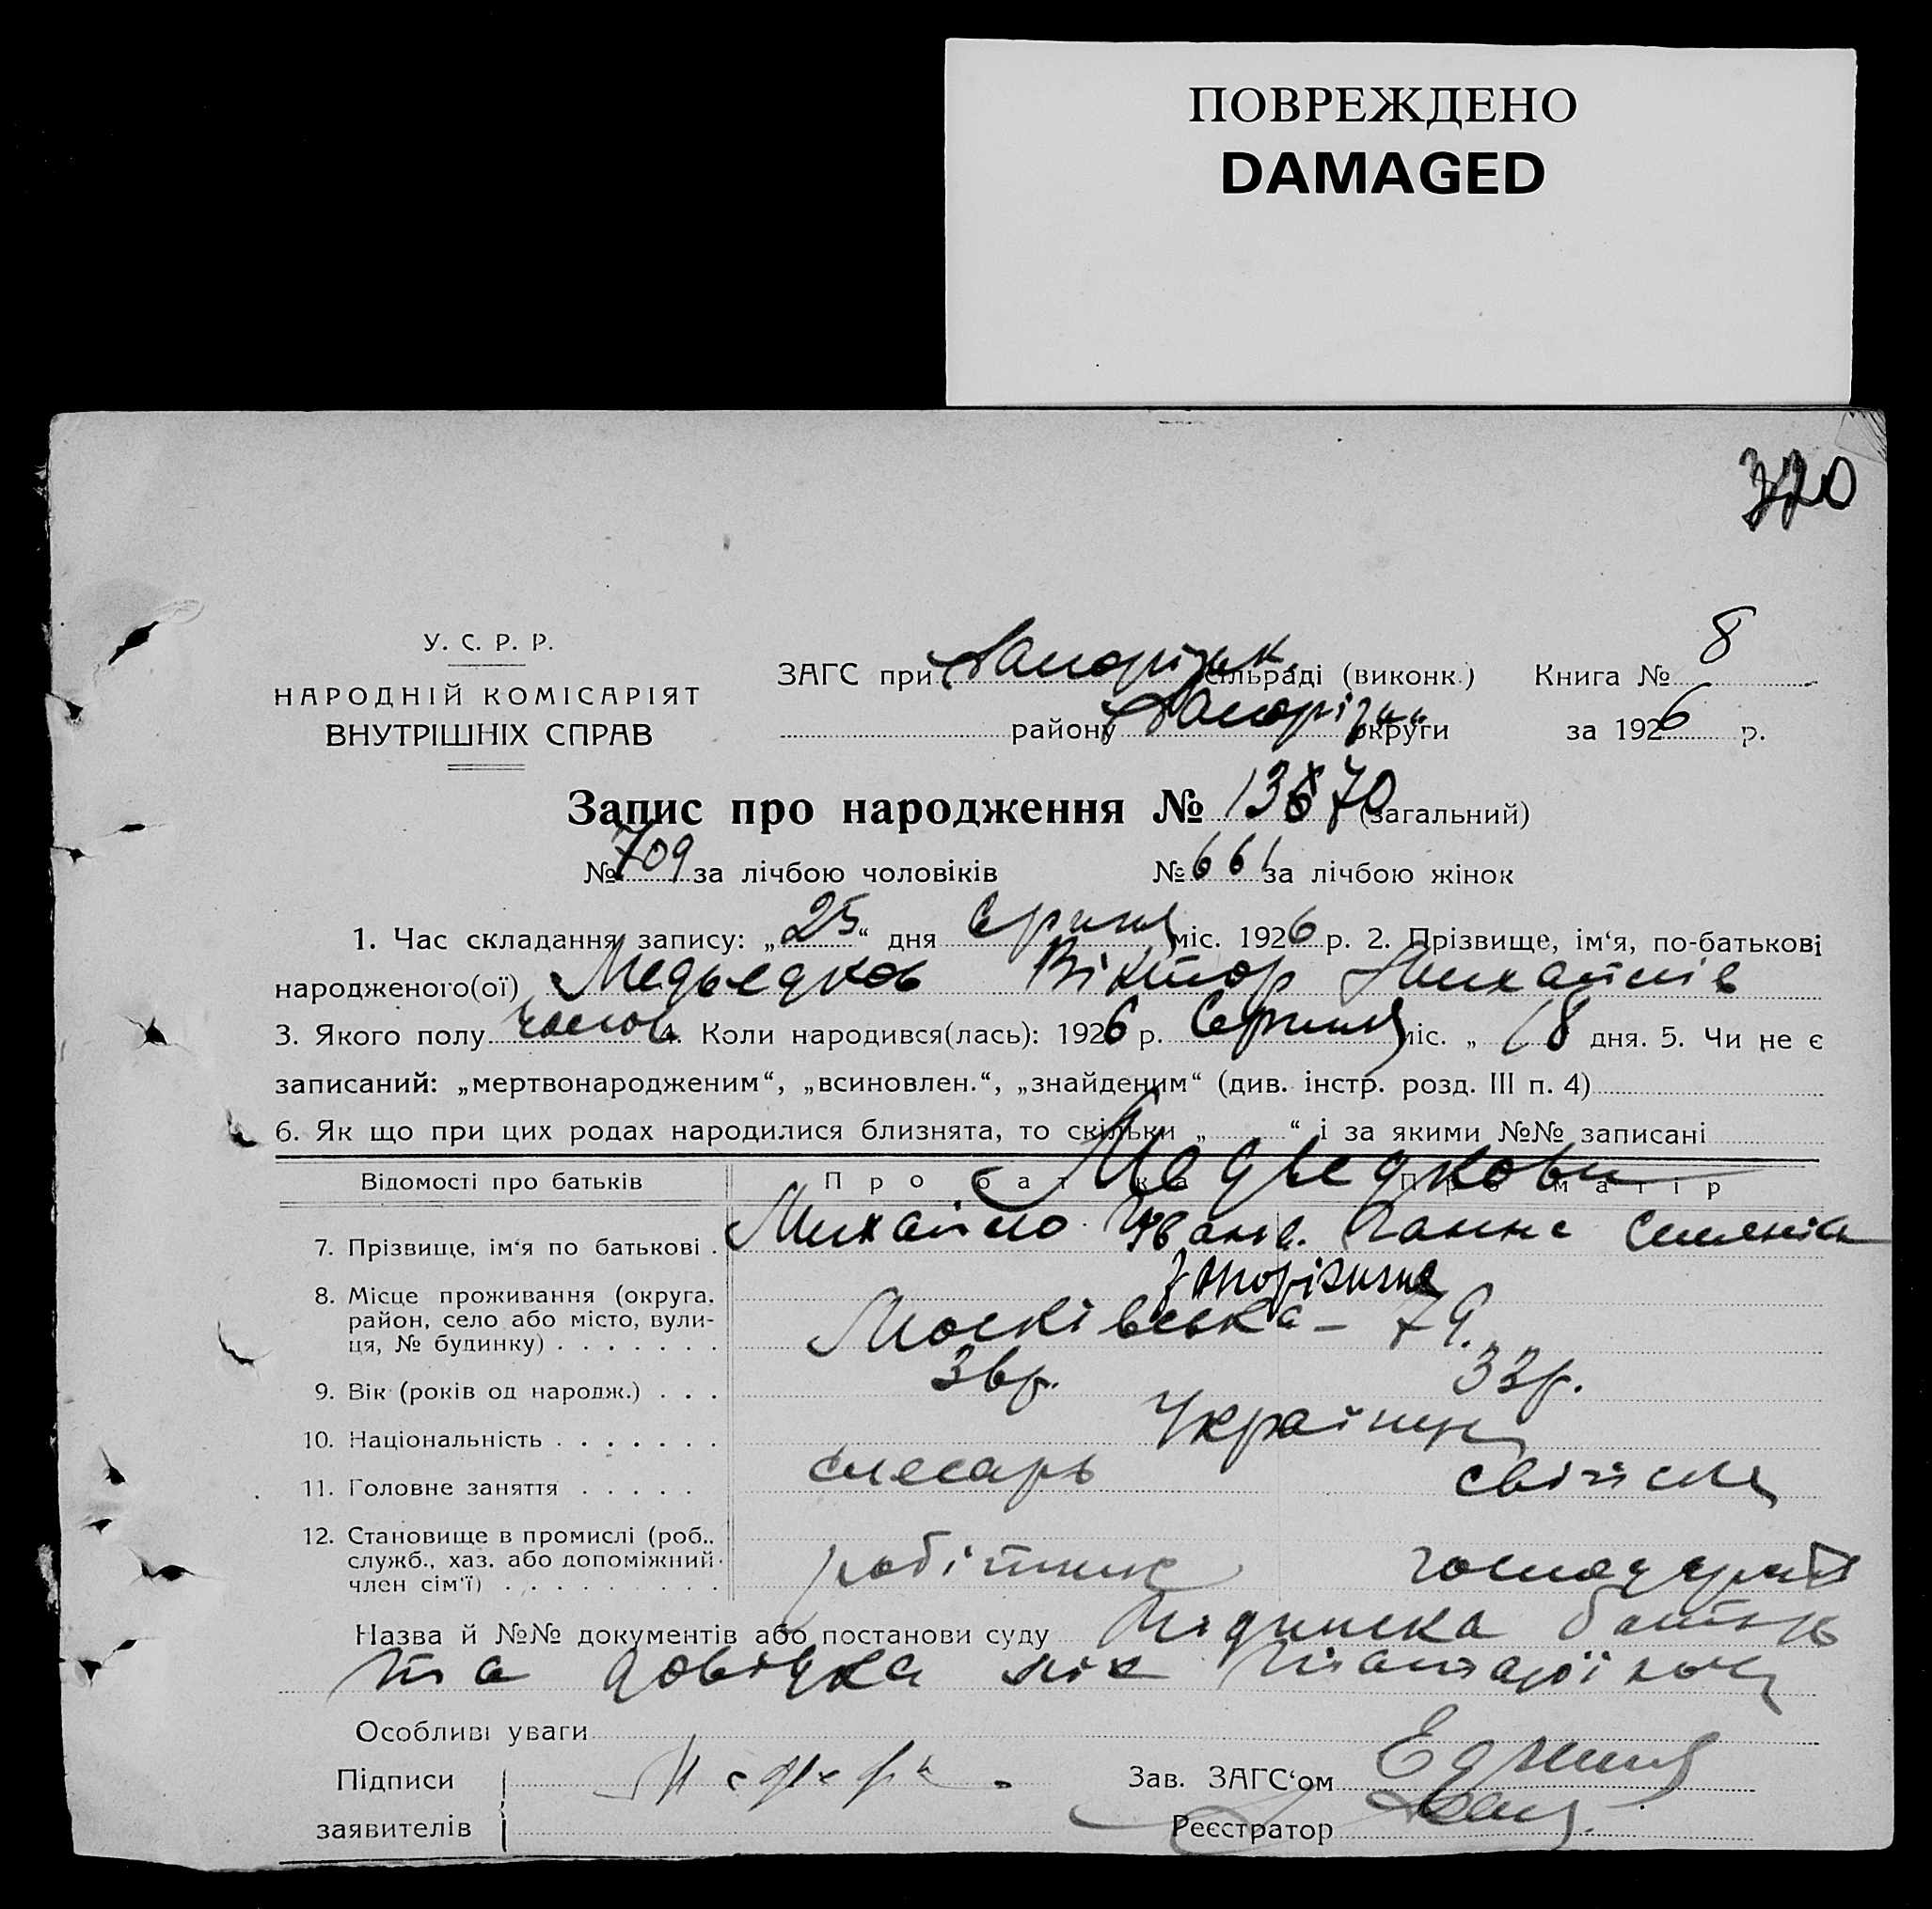 ПОВРЕЖДЕНО
DAMAGED
370
У. С. Р. Р.
НАРОДНІЙ КОМІСАРІЯТ
ВНУТРІШНІХ СПРАВ
ЗАГС при Запорізьк. сільраді (виконк.) Книга № 8
району Запорізьк округи за 1926 р.
Запис про народження № 1370 (загальний)
№ 709 за лічбою чоловіків № 661 за лічбою жінок
1. Час складання запису: „25“ дня Серпня міс. 1926 р. 2. Прізвище, ім‘я, по-батькові
народженого(ої) Медьедков Віктор Михайлів
3. Якого полу чолов 4. Коли народився(лась): 1926 р. Серпня міс. „18 дня. 5. Чи не є
записаний: „мертвонародженим“, „всиновлен.“, „знайденим“ (див. інстр. розд. III п. 4)
6. Як що при цих родах народилися близнята, то скільки „ “ і за якими №№ записані
Відомості про батьків Про батька Про матір
Медьедкови
7. Прізвище, ім‘я по батькові . Михайло Іван. Ганна Семенів
8. Місце проживання (округа, район, село або місто, вулиця, № будинку) . . . . . . . Запоріжжя
Московська – 79.
9. Вік (років од народж.) . . . 36р. 33р.
10. Національність . . . . . . . Українці
11. Головне заняття . . . . . слесарь
12. Становище в промислі (роб., служб., хаз. або допоміжний член сім‘ї) . . . . . . . . . робітник господарка
Назва й №№ документів або постанови суду Підписка батьків
та довідка
Особливі уваги
Підписи
заявителів
Зав. ЗАГС‘ом
Реєстратор